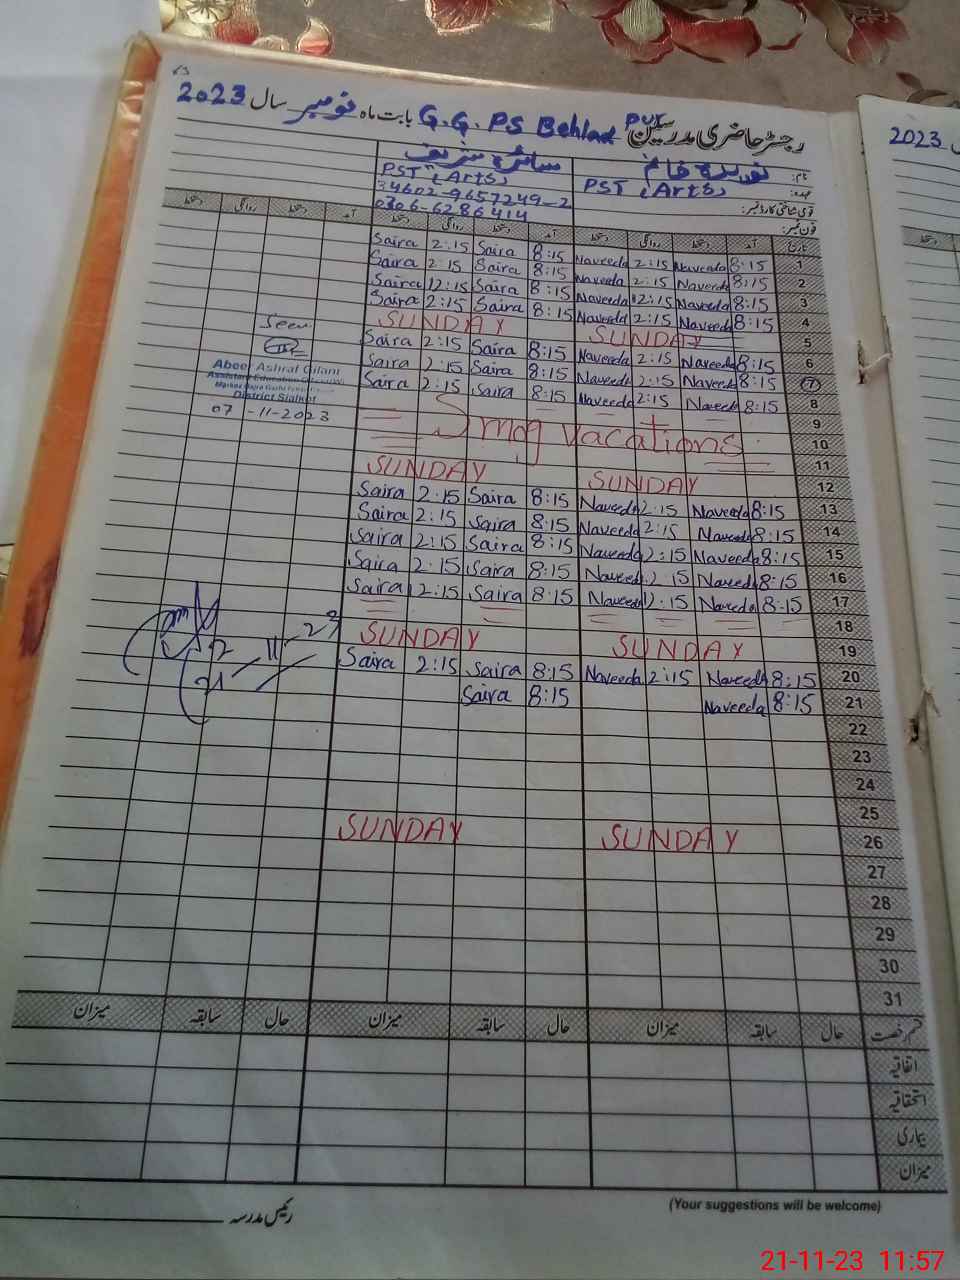 رجسٹر حاضری مدرسین G.G.PS Behlad pur بابت ماہ نومبر سال 2023
2023
نام: نویدہ خانم سائرہ شریف
عہدہ: PST (Arts) PST (Arts)
قومی شناختی کارڈ نمبر: 34602-9657249-2
فون نمبر: 0306-6286414
تاریخ آمد دستخط روانگی دستخط آمد دستخط روانگی دستخط آمد دستخط روانگی دستخط
Saira 2:15 Saira 8:15 Naveeda 2:15 Naveeda 8:15 1
Saira 2:15 Saira 8:15 Naveeda 2:15 Naveeda 8:15 2
Saira 12:15 Saira 8:15 Naveeda 12:15 Naveeda 8:15 3
Saira 2:15 Saira 8:15 Naveeda 2:15 Naveeda 8:15 4
SUNDAY SUNDAY 5
Saira 2:15 Saira 8:15 Naveeda 2:15 Naveeda 8:15 6
Saira 2:15 Saira 8:15 Naveeda 2:15 Naveeda 8:15 7
Saira 2:15 Saira 8:15 Naveeda 2:15 Naveeda 8:15 8
Seen
Abeer Ashraf Gilani
Assistant Education Officer
District Sialkot
07-11-2023
9
Smog vacations 10
11
SUNDAY SUNDAY 12
Saira 2:15 Saira 8:15 Naveeda 2:15 Naveeda 8:15 13
Saira 2:15 Saira 8:15 Naveeda 2:15 Naveeda 8:15 14
Saira 2:15 Saira 8:15 Naveeda 2:15 Naveeda 8:15 15
Saira 2:15 Saira 8:15 Naveeda 2:15 Naveeda 8:15 16
Saira 2:15 Saira 8:15 Naveeda 2:15 Naveeda 8:15 17
18
SUNDAY SUNDAY 19
Saira 2:15 Saira 8:15 Naveeda 2:15 Naveeda 8:15 20
Saira 8:15 Naveeda 8:15 21
22
23
24
25
SUNDAY SUNDAY 26
27
28
29
30
31
قسم رخصت حال سابقہ میزان حال سابقہ میزان حال سابقہ میزان
اتفاقیہ
استحقاقیہ
بیماری
میزان
(Your suggestions will be welcome)
رئیس مدرسہ
21-11-23 11:57